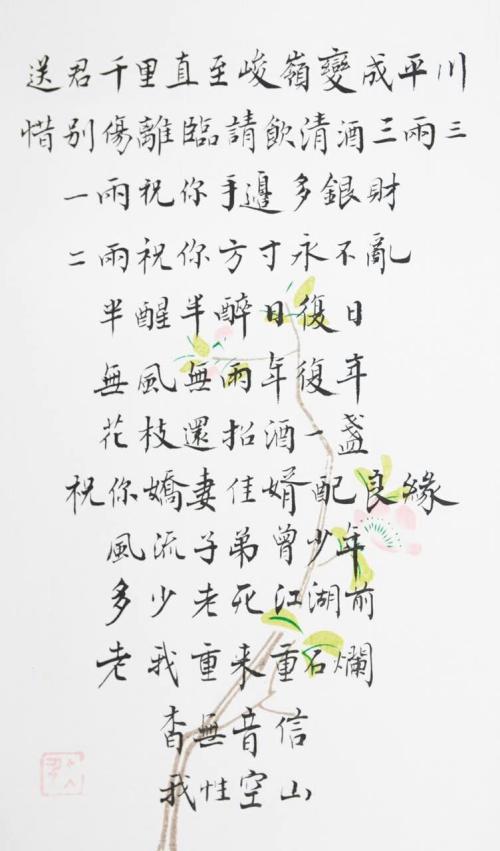 送君千里直至峻嶺變成平川
惜别傷離臨請飲清酒三兩三
一兩祝你手邊多銀財
二兩祝你方寸永不亂
半醒半醉日復日
無風無雨年復年
花枝還招酒一盞
祝你嬌妻佳婿配良緣
風流子弟曾少年
多少老死江湖前
老我重来重石爛
杳無音信
我性空山